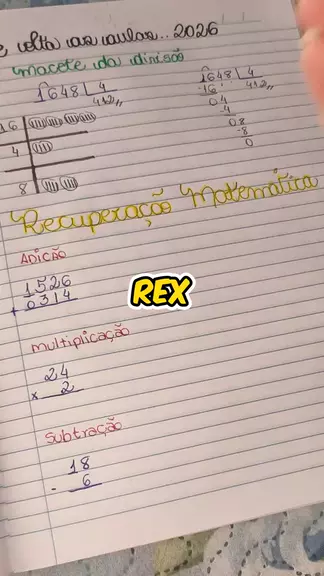 e volta as aulas.. 2026
macete da divisão
1648 | 4
412,,
1648 | 4
-16 412,,
04
-4
08
-8
0
16
4
8
Recuperação Matemática
Adição
1526
+ 0314
REX
multiplicação
24
x 2
Subtração
18
- 6